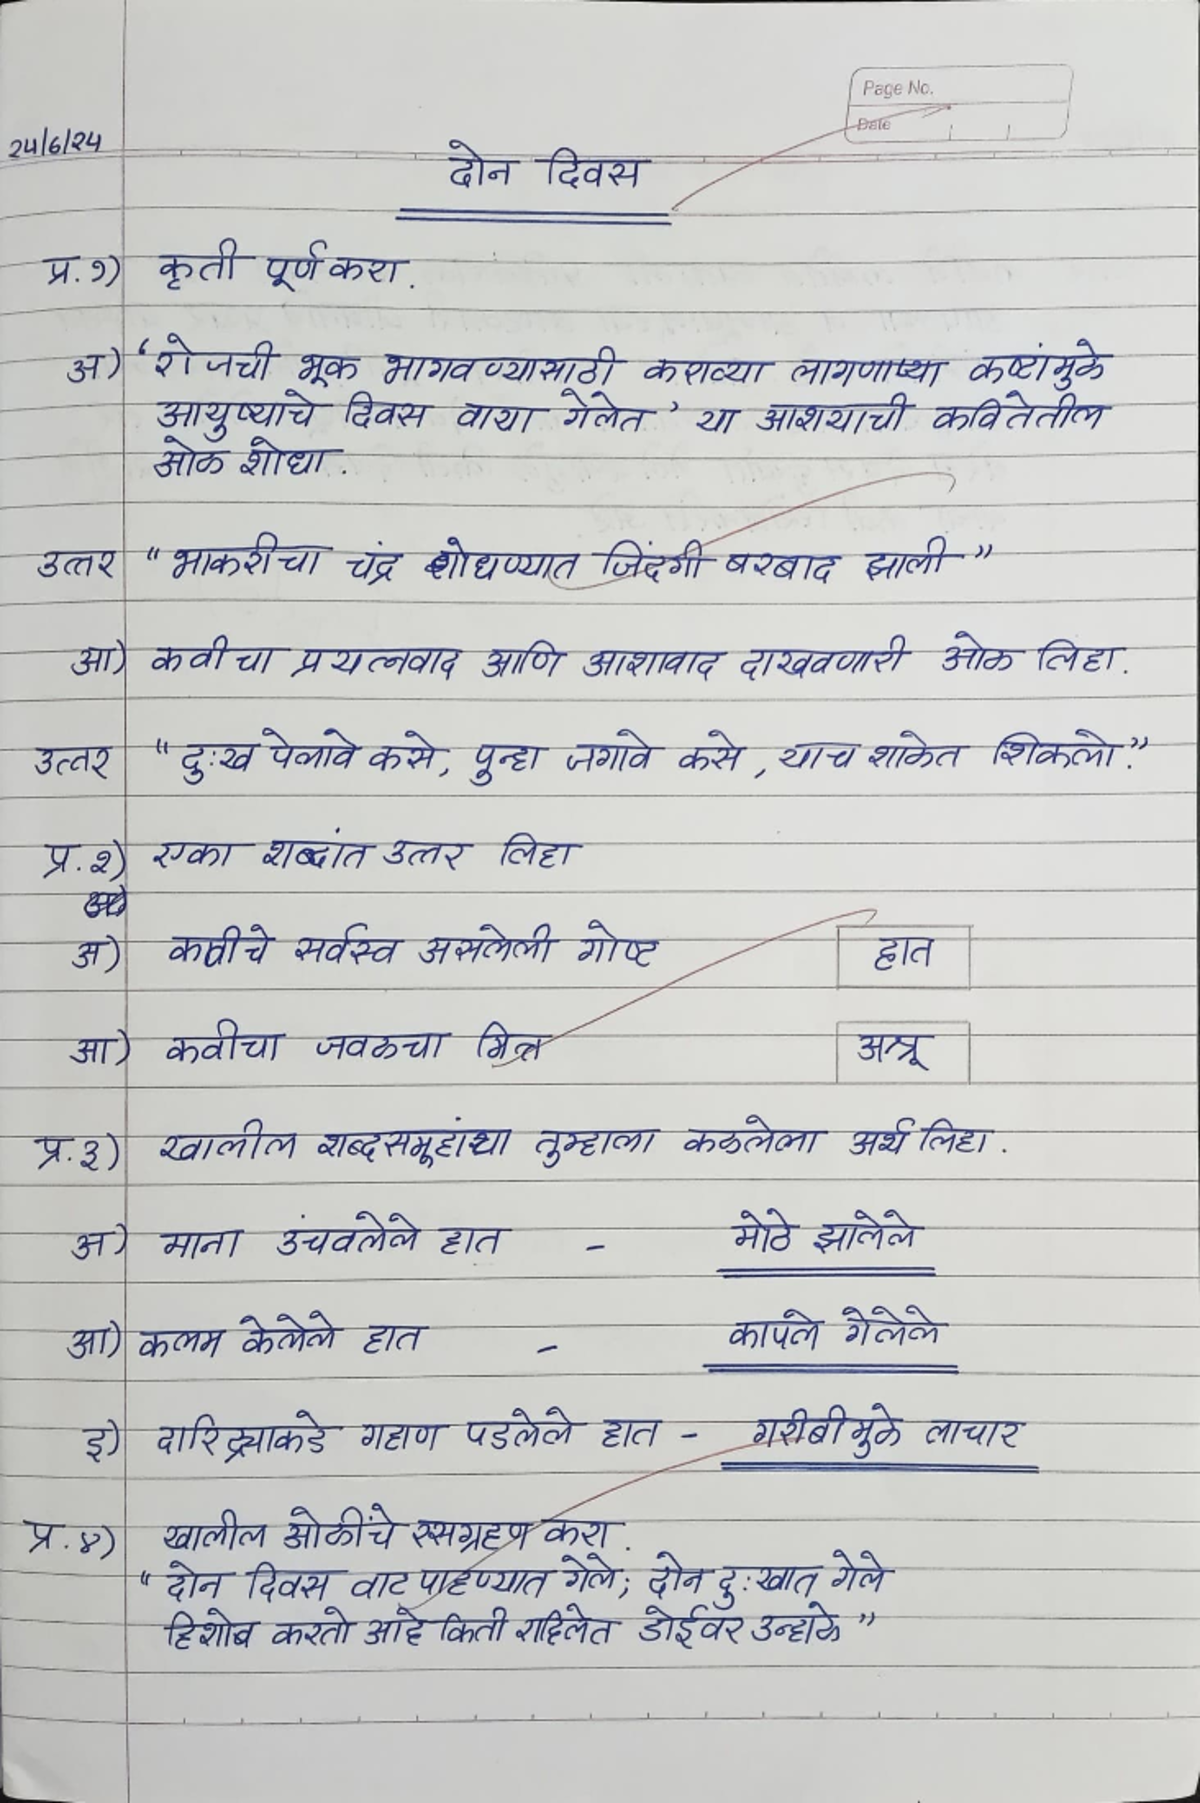 Page No.
Date
२५/6/२५
दोन दिवस
प्र.१) कृती पूर्ण करा.
अ) ‘रोजची भूक भागवण्यासाठी कराव्या लागणाऱ्या कष्टांमुळे
आयुष्याचे दिवस वाया गेलेत’ या आशयाची कवितेतील
ओळ शोधा.
उत्तर “भाकरीचा चंद्र शोधण्यात जिंदगी बरबाद झाली”
आ) कवीचा प्रयत्नवाद आणि आशावाद दाखवणारी ओळ लिहा.
उत्तर “दुःख पेलावे कसे, पुन्हा जगावे कसे, याच शाळेत शिकलो.”
प्र.२) एका शब्दांत उत्तर लिहा
अ) कवीचे सर्वस्व असलेली गोष्ट हात
आ) कवीचा जवळचा मित्र अश्रू
प्र.३) खालील शब्दसमूहांचा तुम्हाला कळलेला अर्थ लिहा.
अ) माना उंचवलेले हात - मोठे झालेले
आ) कलम केलेले हात - कापले गेलेले
इ) दारिद्र्याकडे गहाण पडलेले हात - गरीबीमुळे लाचार
प्र.४) खालील ओळींचे रसग्रहण करा.
“दोन दिवस वाट पाहण्यात गेले; दोन दुःखात गेले
हिशोब करतो आहे किती राहिलेत डोईवर उन्हाळे”